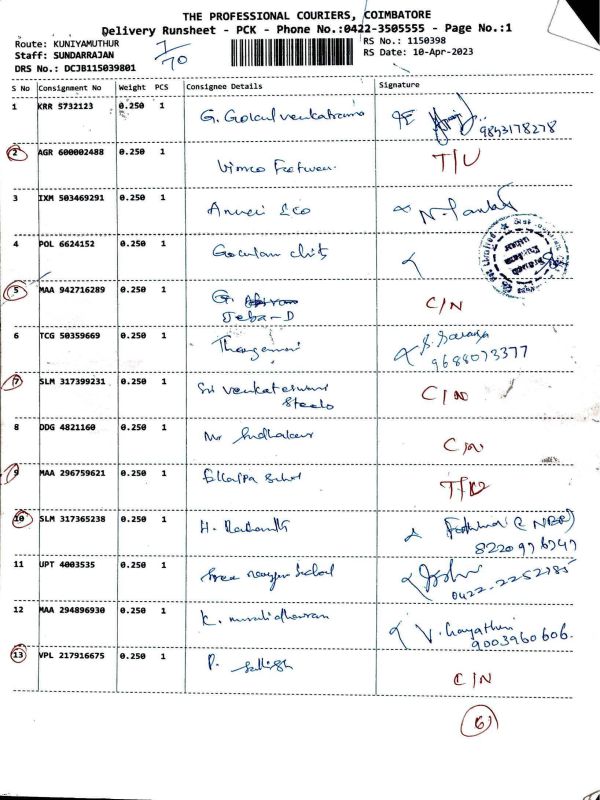 THE PROFESSIONAL COURIERS, COIMBATORE
Delivery Runsheet - PCK - Phone No.:0422-3505555 - Page No.:1
Route: KUNIYAMUTHUR
Staff: SUNDARRAJAN
DRS No.: DCJB115039801
RS No.: 1150398
RS Date: 10-Apr-2023
S No Consignment No Weight PCS Consignee Details Signature
1 KRR 5732123 0.250 1 G. Gokul venkatrama 9843178278
2 AGR 600002488 0.250 1 T/U
3 IXM 503469291 0.250 1
4 POL 6624152 0.250 1 Goculam chits
5 MAA 942716289 0.250 1 G. C/N
Jeba-D
6 TCG 50359669 0.250 1 Thangamani S. Saranya
9688073377
7 SLM 317399231 0.250 1 Sri Venkateswara C/N
Steels
8 DDG 4821160 0.250 1 Mr Sudhakar C/N
9 MAA 296759621 0.250 1 T/U
10 SLM 317365238 0.250 1 H.
11 UPT 4003535 0.250 1
12 MAA 294896930 0.250 1 K. muralidharan V. Gayathri
9003960606.
13 VPL 217916675 0.250 1 P. Sathish C/N